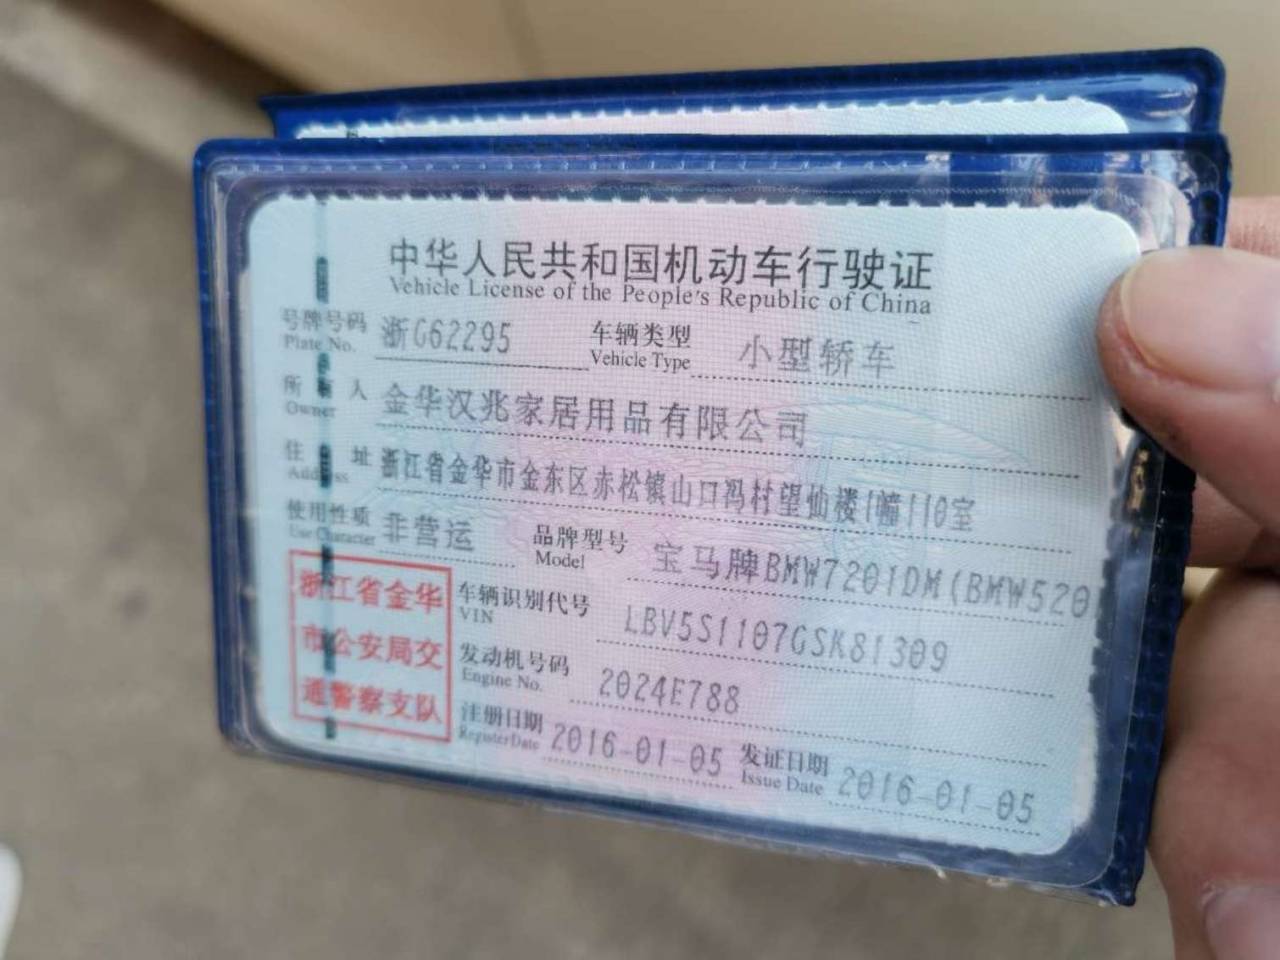 中华人民共和国机动车行驶证
Vehicle License of the People's Republic of China
号牌号码 浙G62295 车辆类型 小型轿车
Plate No. Vehicle Type
所有人 金华汉兆家居用品有限公司
Owner
住址 浙江省金华市金东区赤松镇山口冯村望仙楼1幢110室
Address
使用性质 非营运 品牌型号 宝马牌BMW7201DM(BMW520
Use Character Model
浙江省金华
市公安局交
通警察支队
车辆识别代号 LBV5S1107GSK81309
VIN
发动机号码 2024E788
Engine No.
注册日期 2016-01-05 发证日期 2016-01-05
Register Date Issue Date